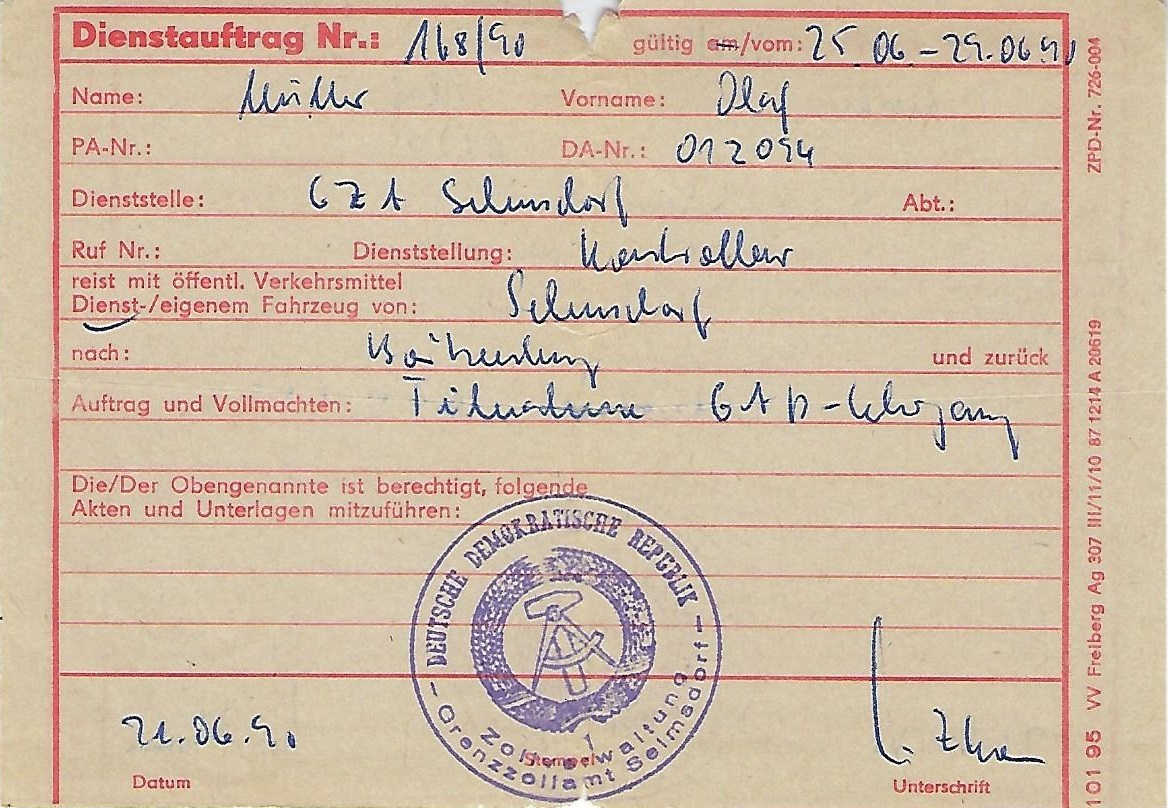 Dienstauftrag Nr.: 168/90 gültig am/vom: 25.06.-29.06.90
Name: Müller Vorname: Olaf
PA-Nr.: DA-Nr.: 012094
Dienststelle: GZA Selmsdorf Abt.:
Ruf Nr.: Dienststellung: Kontrolleur
reist mit öffentl. Verkehrsmittel
Dienst-/eigenem Fahrzeug von: Selmsdorf
nach: und zurück
Auftrag und Vollmachten: Teilnahme -Lehrgang
Die/Der Obengenannte ist berechtigt, folgende
Akten und Unterlagen mitzuführen:
DEUTSCHE DEMOKRATISCHE REPUBLIK
Zollverwaltung
1
Grenzzollamt Selmsdorf
.06.90
Datum
Stempel
Unterschrift
ZPD-Nr. 726-004
101 95 VV Freiberg Ag 307 III/11/10 87 1214 A 20619